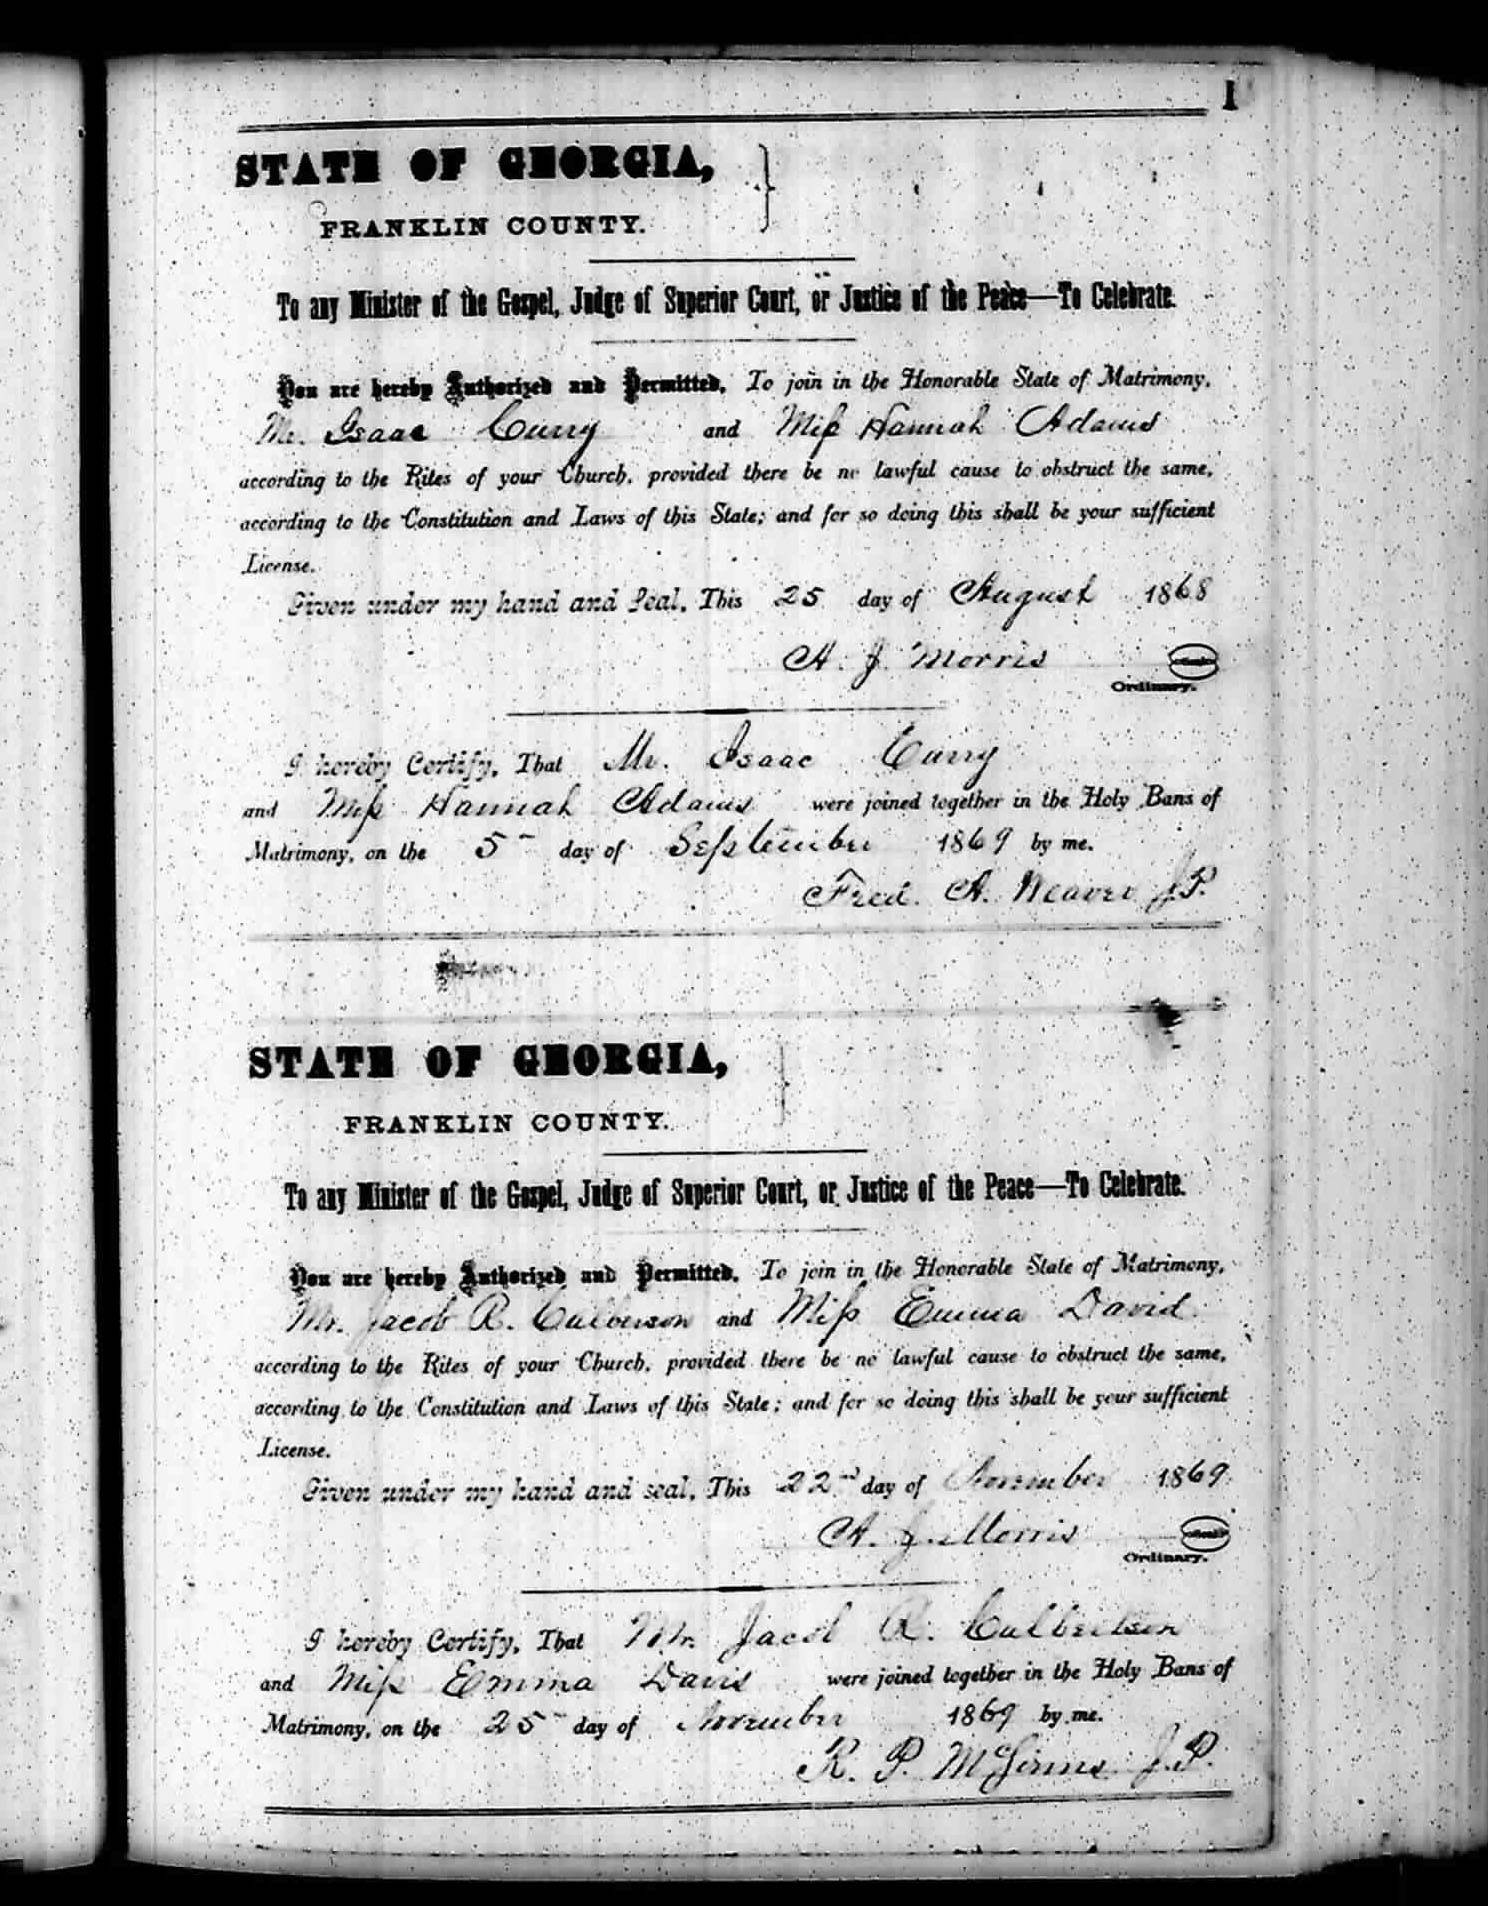 1
STATE OF GEORGIA,
FRANKLIN COUNTY.
To any Minister of the Gospel, Judge of Superior Court, or Justice of the Peace—To Celebrate.
You are hereby Authorized and Permitted, To join in the Honorable State of Matrimony,
Mr. Isaac Curry and Miss Hannah Adams
according to the Rites of your Church, provided there be no lawful cause to obstruct the same,
according to the Constitution and Laws of this State; and for so doing this shall be your sufficient
License.
Given under my hand and Seal, This 25 day of August 1868
A. J. Morris
Ordinary.
I hereby Certify, That Mr. Isaac Curry
and Miss Hannah Adams were joined together in the Holy Bans of
Matrimony, on the 5 day of September 1869 by me.
Fred. A. Weaver J.P.
STATE OF GEORGIA,
FRANKLIN COUNTY.
To any Minister of the Gospel, Judge of Superior Court, or Justice of the Peace—To Celebrate.
You are hereby Authorized and Permitted, To join in the Honorable State of Matrimony,
Mr. Jacob R. Culberson and Miss Emma David
according to the Rites of your Church, provided there be no lawful cause to obstruct the same,
according to the Constitution and Laws of this State; and for so doing this shall be your sufficient
License.
Given under my hand and seal, This 22nd day of November 1869
A. J. Morris
Ordinary.
I hereby Certify, That Mr. Jacob R. Culbertson
and Miss Emma Davis were joined together in the Holy Bans of
Matrimony, on the 25 day of November 1869 by me.
R. P. J.P.